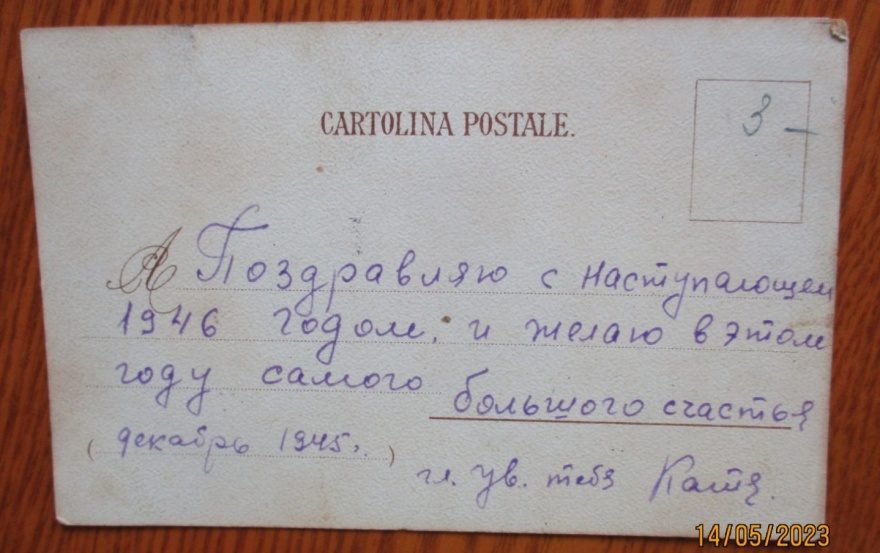 3 –
CARTOLINA POSTALE.
A Поздравляю с наступающем
1946 годом, и желаю в этом
году самого большого счастья
(декабрь 1945г.)
гл. ув. тебя Катя.
14/05/2023